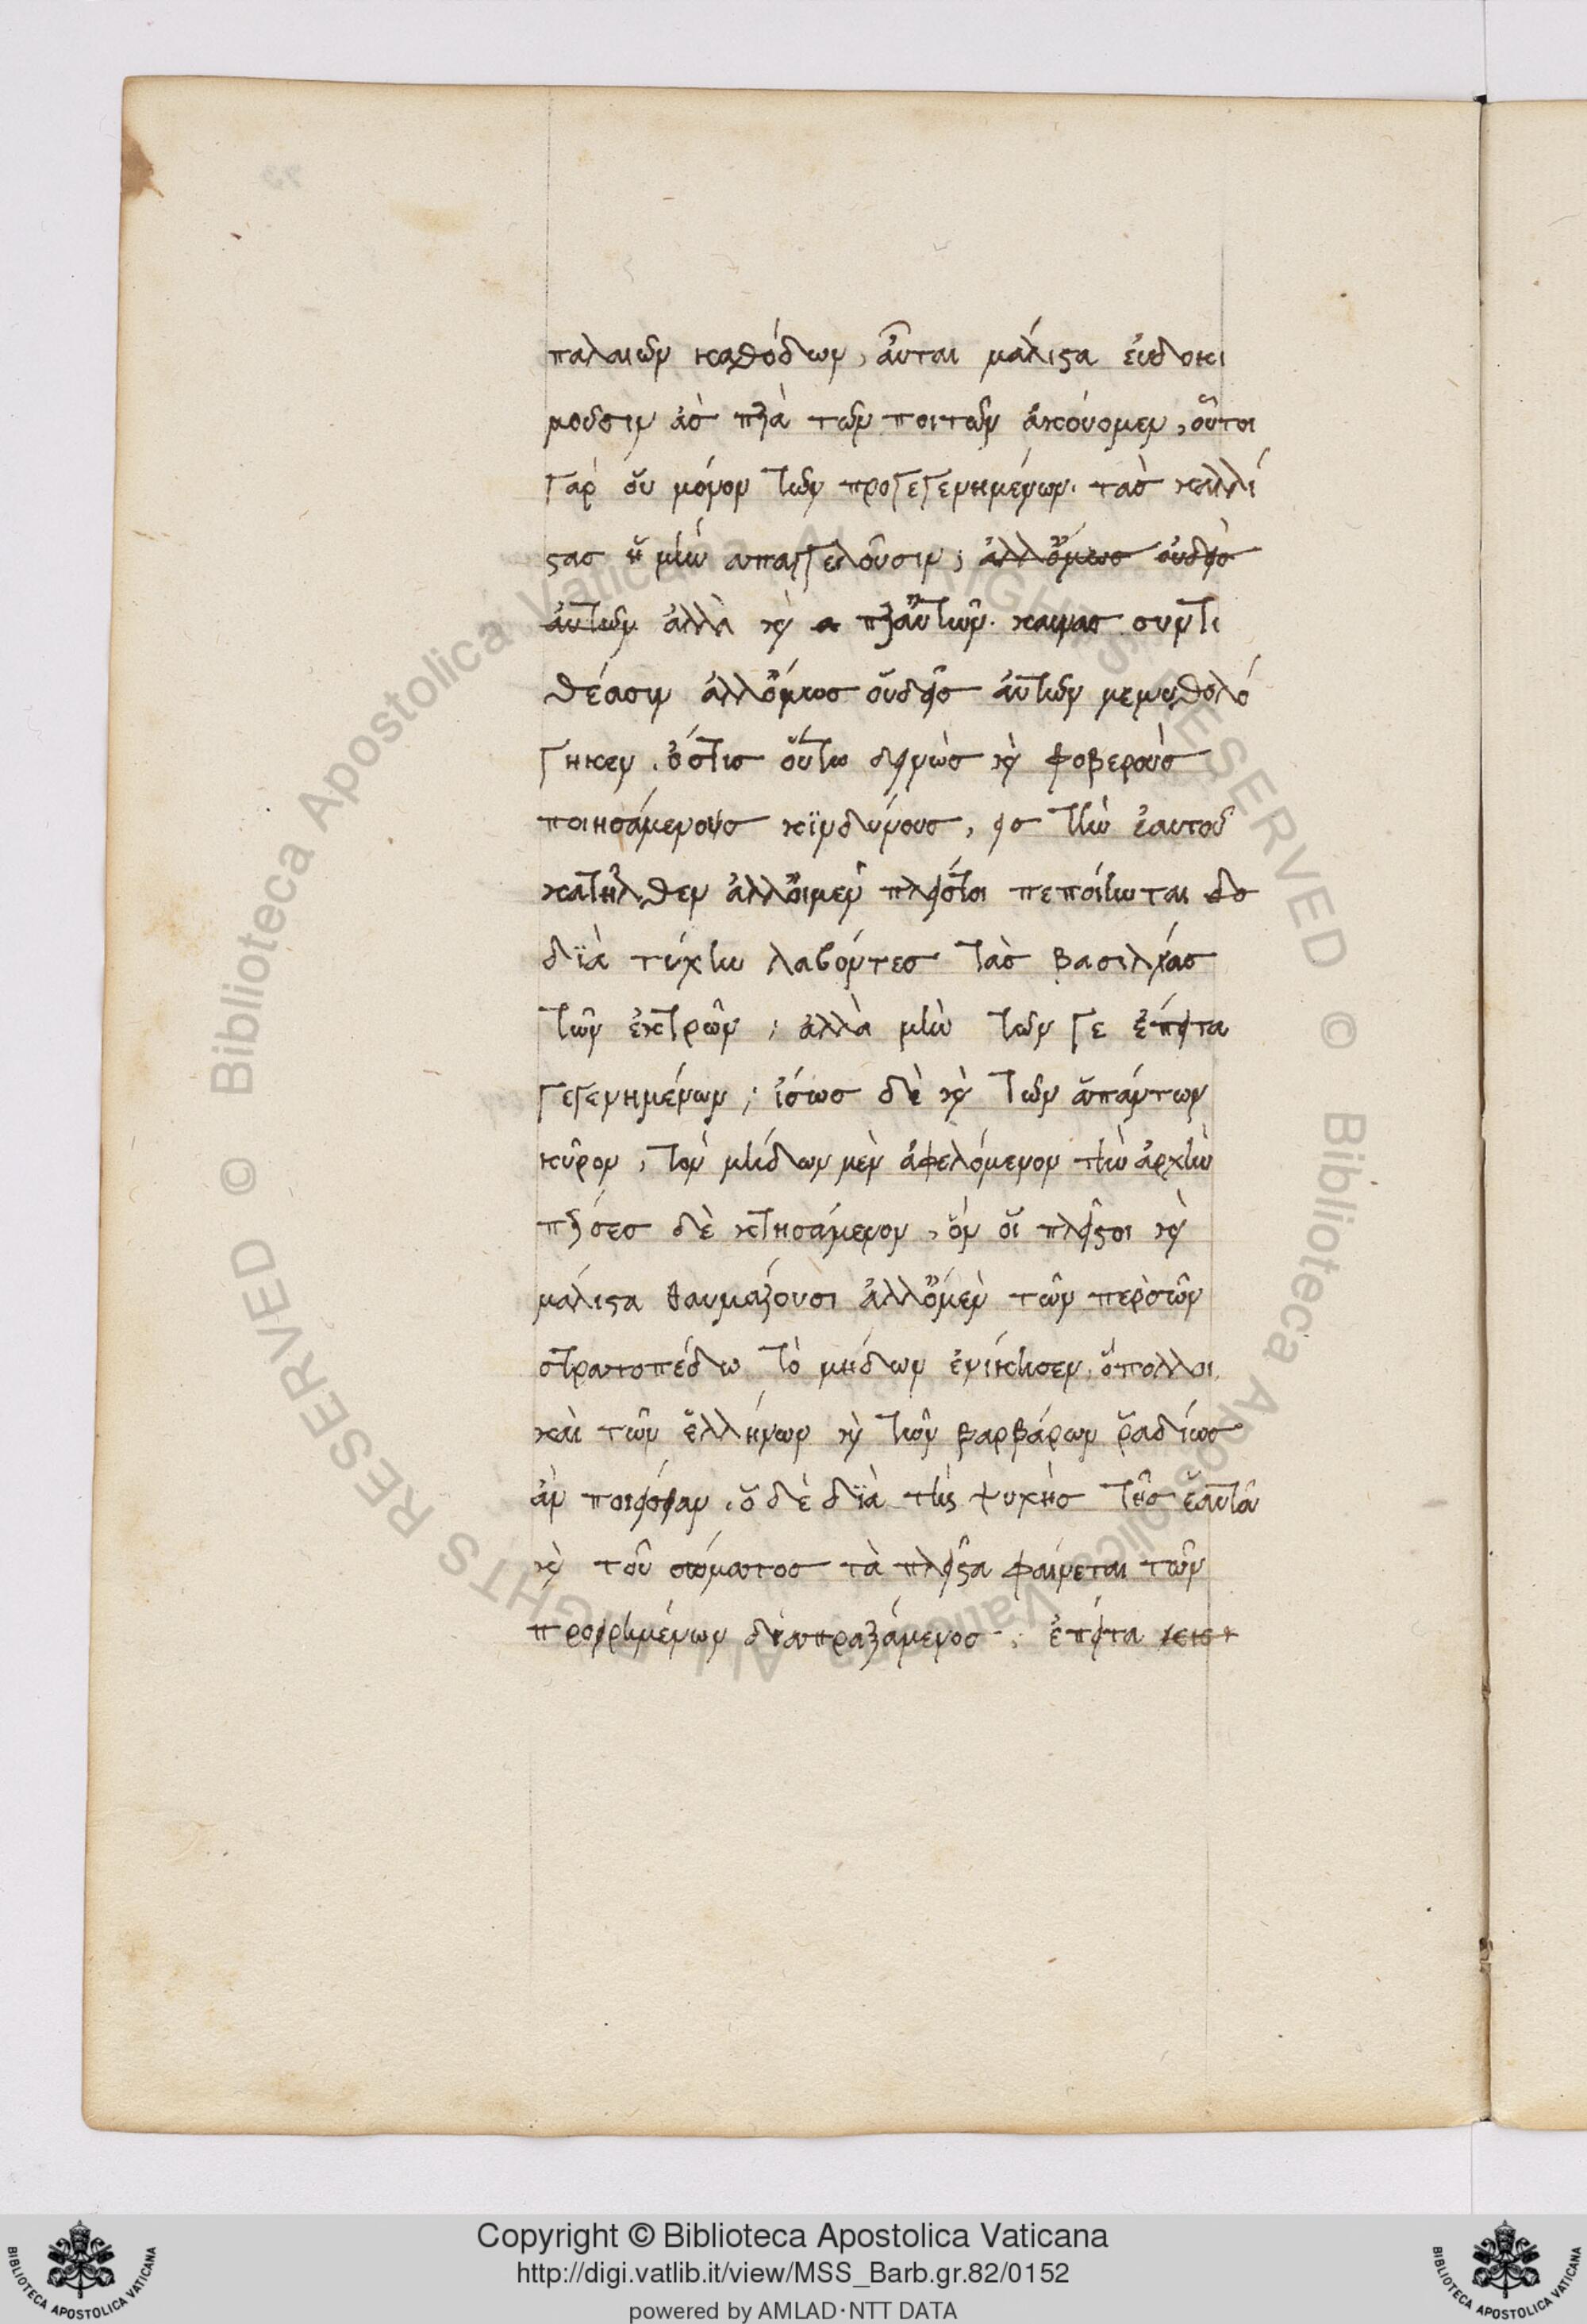 παλαιῶν καθόδων, αὗται μάλιστα εὐδοκι
μοῦσιν ἁσ παρὰ τῶν ποιτῶν ἀκούομεν, οὗτοι
γὰρ οὐ μόνον τῶν προγεγενημένων. τὰσ καλλί
στασ ἡμῖν απαγγελοῦσιν; ἀλλόμωσ οὐδεὶσ
ἀυτῶν ἀλλὰ καὶ α παρἀυτῶν. καινασ συντι
θέασιν ἀλλόμωσ οὐδεὶσ ἀυτῶν μεμυθολό
γηκεν. ὅστισ οὕτω δεινὼσ καὶ φοβεροὺσ
ποιησάμενουσ κϊνδύνουσ, εισ τὴν ἑαυτοῦ
κατῆλθεν ἀλλοιμεν πλεῖστοι πεποίηνται δο
δϊὰ τύχην λαβόντεσ τὰσ βασιλείασ
τῶν ἐκτρῶν; ἀλλὰ μὴν τῶν γε ἐπειτα
γεγενημένων; ἰσωσ δὲ καὶ τῶν ἁπάντων
κῦρον, τὸν μήδων μὲν ἀφελόμενον τὴν ἀρχὴν
πέρσεσ δὲ κτησάμενον, ὃν οἱ πλεῖστοι καὶ
μάλιστα θαυμαζουσι ἀλλὁμὲν τῶν περσῶν
στρατοπέδω τὸ μηδων ἐνίκησεν. ὁπολλοι.
καὶ τῶν ἑλλήνων καὶ τῶν βαρβάρων ῥαδίωσ
ἀν ποιείσειαν. ὁ δὲ δϊὰ τῆς ψυχῆσ τῆσ ἑαυτοῦ
καὶ τοῦ σώματοσ τὰ πλεῖστα φαίνεται τῶν
προειρημένων διαπραξάμενοσ. ἐπειτα
Copyright © Biblioteca Apostolica Vaticana
http://digi.vatlib.it/view/MSS_Barb.gr.82/0152
powered by AMLAD·NTT DATA